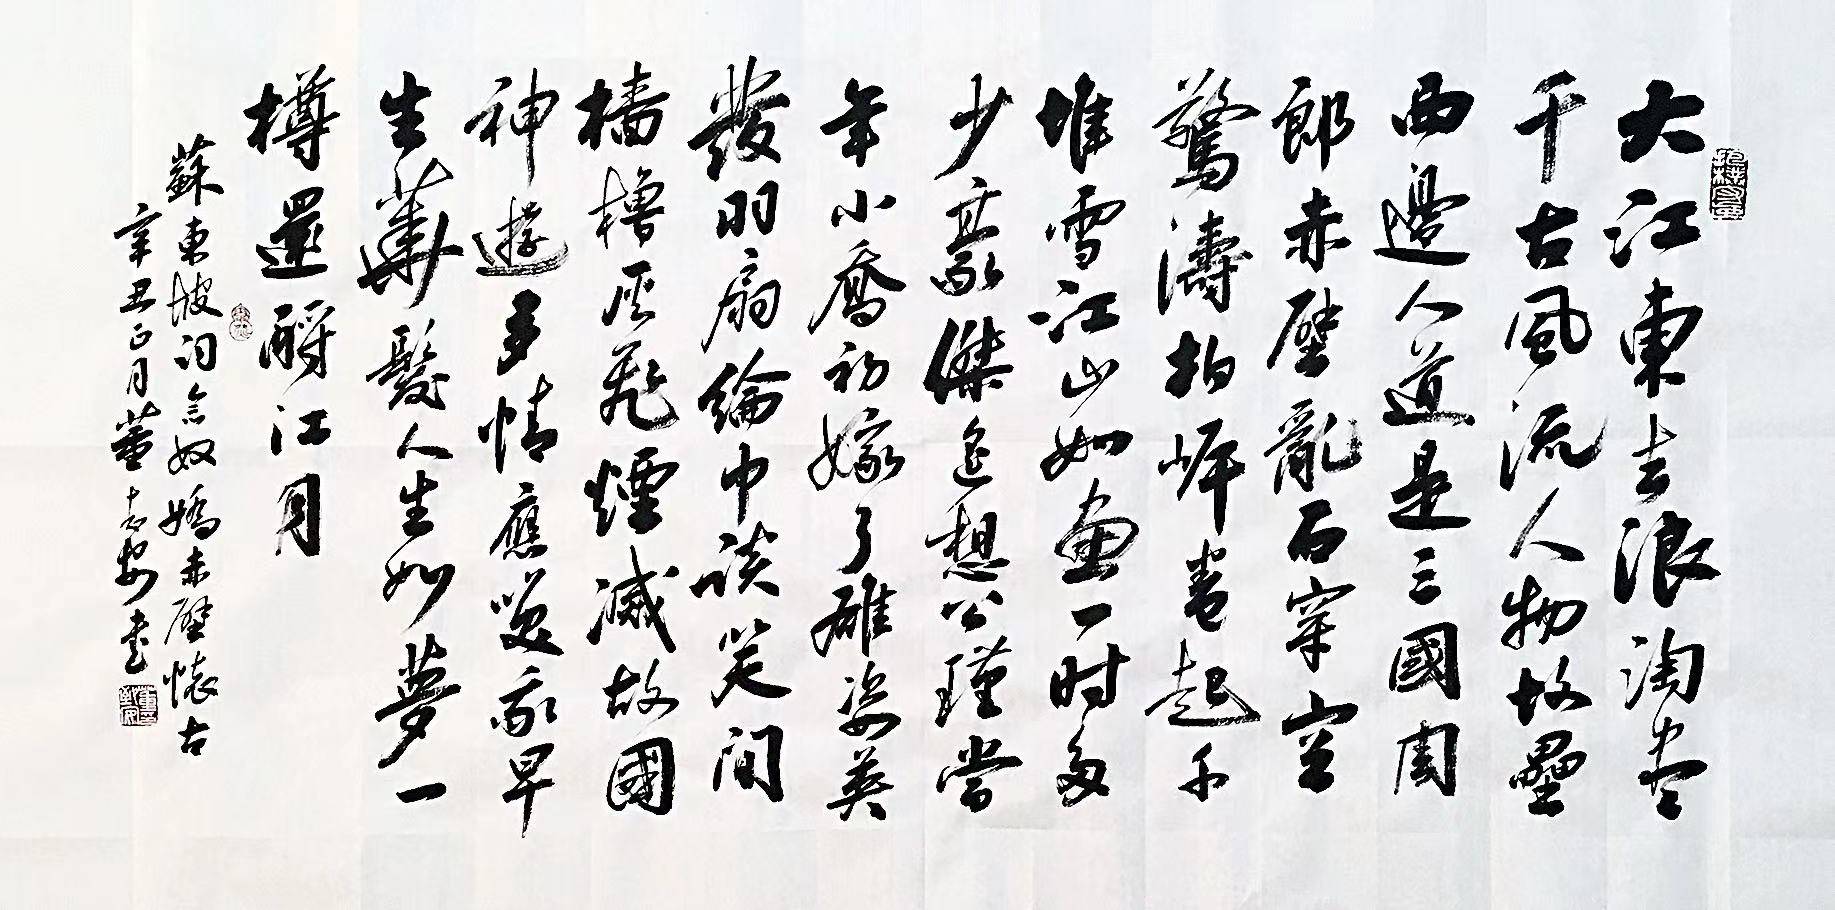 大江東去浪淘尽
千古風流人物故壘
西邊人道是三國周
郎赤壁亂石穿空
驚濤拍岸卷起千
堆雪江山如畫一时多
少豪傑遙想公瑾當
年小喬初嫁了雄姿英
發羽扇綸巾談笑間
檣櫓灰飛煙滅故國
神遊多情應笑我早
生華髮人生如夢一
樽還酹江月
蘇東坡词念奴嬌赤壁懷古
辛丑正月董志安书